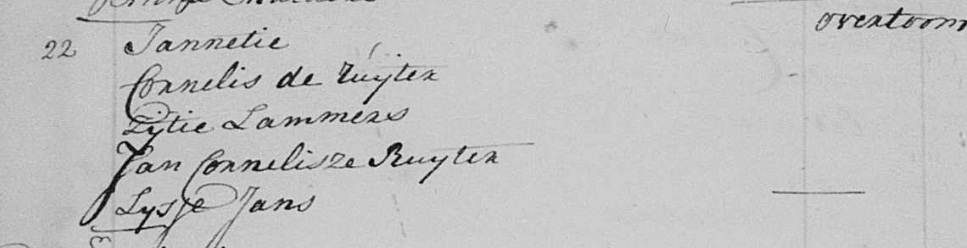 overtoom
22 Jannetie
Cornelis de Ruyter
Pytie Lammers
Jan Cornelisze Ruyter
Lysje Jans